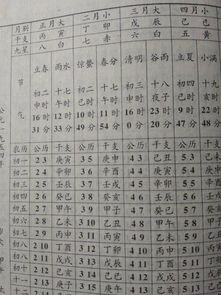 月别 正月大 二月小 三月大 四月小
干支 丙寅 丁卯 戊辰 己巳
九星 八白 七赤 六白 五黄
节气 立春 雨水 惊蛰 春分 清明 谷雨 立夏 小满
初二 十七 初二 十七 十八 十九
申时 午时 巳时 午时 申时 夜子 巳时 亥时
16时 12时 10时 11时 23时 9时 22时
31分 33分 49分 54分 20分 48分
农历 公历 干支 公历 干支 公历 干支 公历 干支
初一 2 3 庚寅 3 5 庚申 4 3 己丑 5 3 己未
初二 2 4 辛卯 3 6 辛酉 4 4 庚寅 5 4 庚申
初三 2 5 壬辰 3 7 壬戌 4 5 辛卯 5 5 辛酉
初四 2 6 癸巳 3 8 癸亥 4 6 壬辰 5 6 壬戌
初五 2 7 甲午 3 9 甲子 4 7 癸巳 5 7 癸亥
初六 2 8 乙未 3 10 乙丑 4 8 甲午 5 8 甲子
初七 2 9 丙申 3 11 丙寅 4 9 乙未 5 9 乙丑
初八 2 10 丁酉 3 12 丁卯 4 10 丙申 5 10 丙寅
初九 2 11 戊戌 3 13 戊辰 4 11 丁酉 5 11 丁卯
初十 2 12 己亥 3 14 己巳 4 12 戊戌 5 12 戊辰
2 13